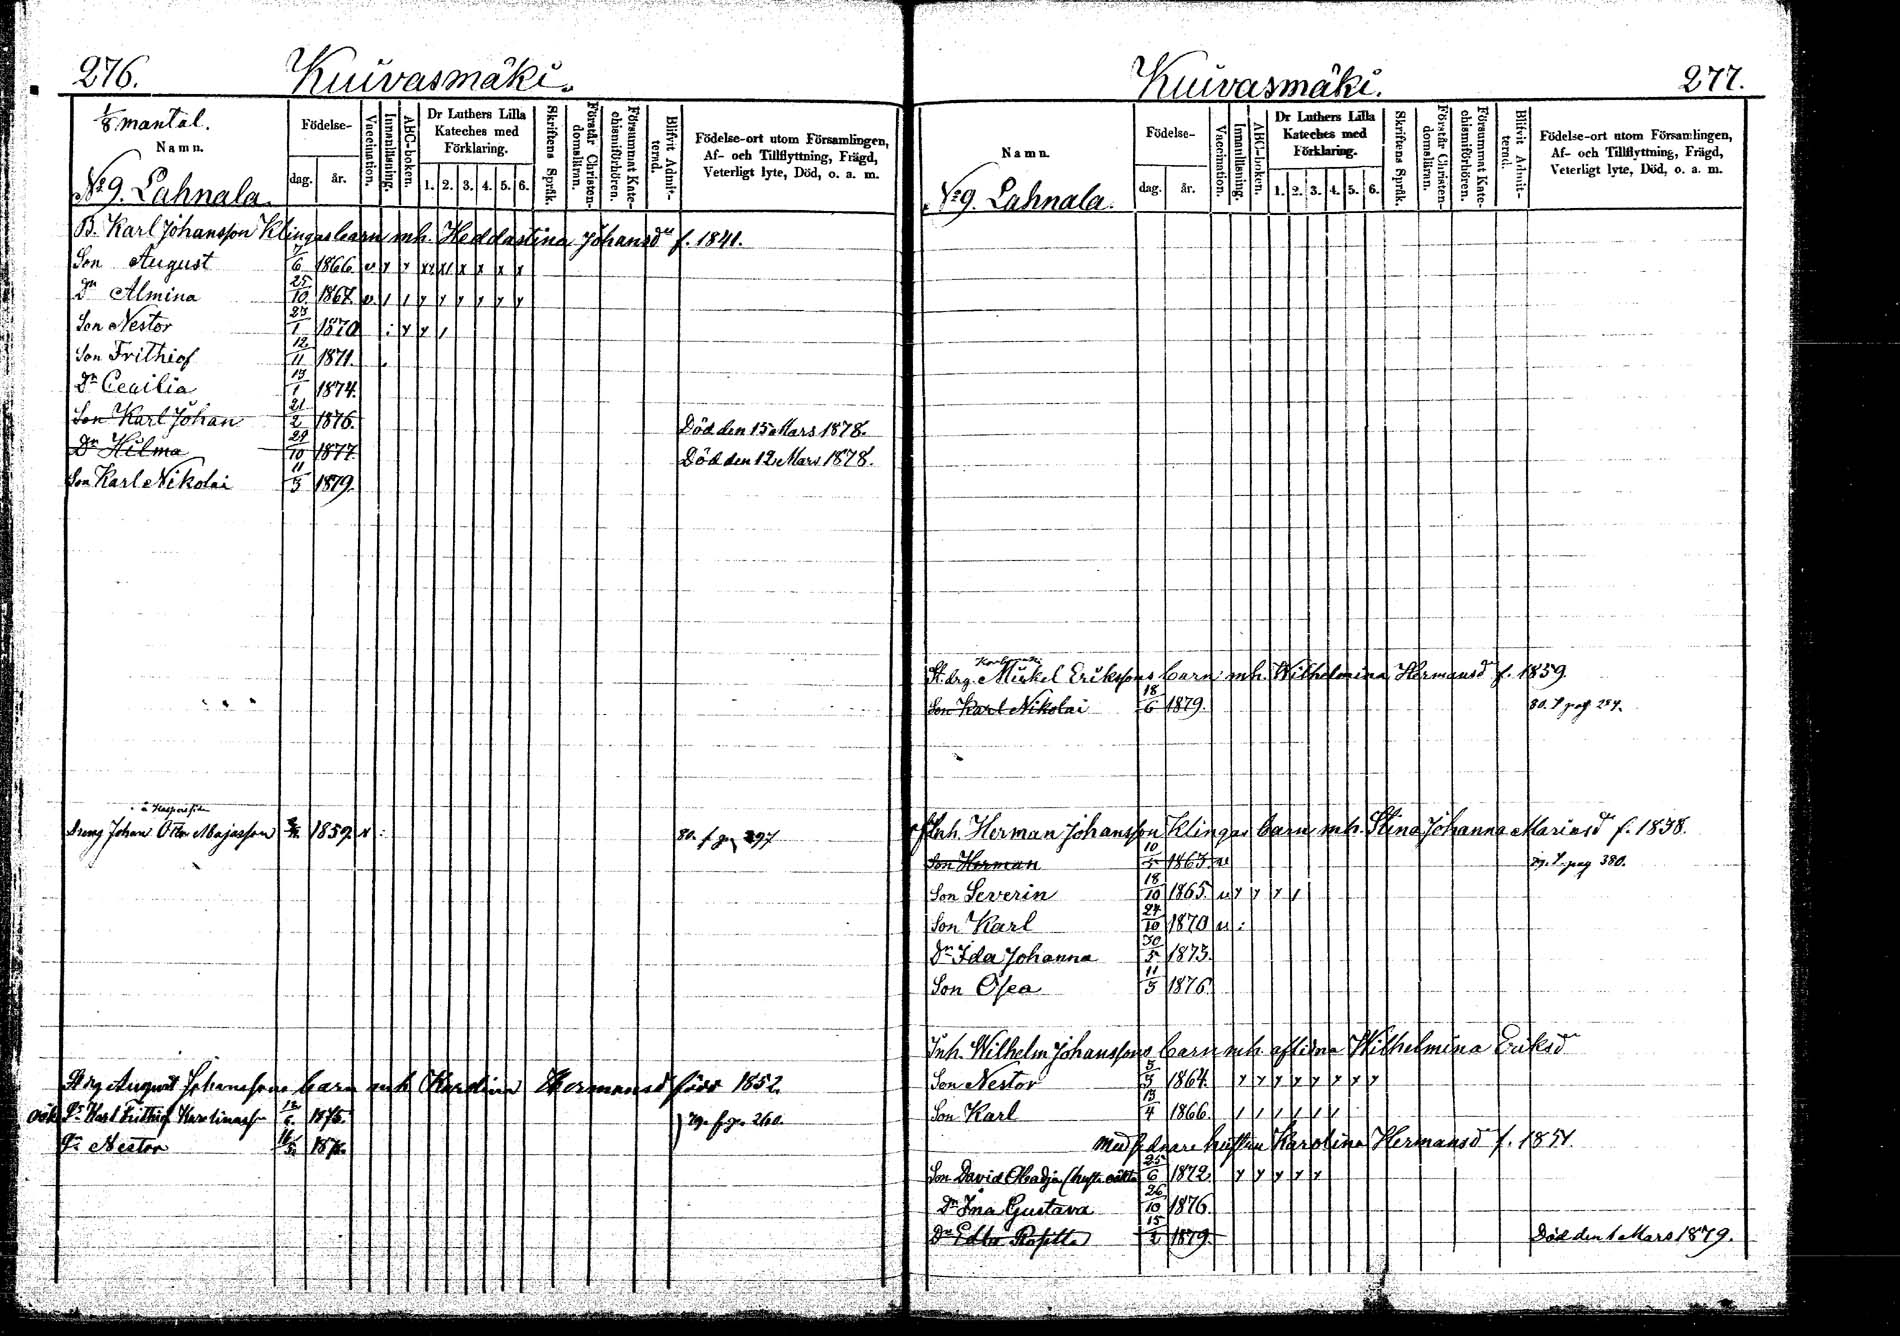 276. Kuivasmäki.
1/8 mantal.
Namn.
No 9. Lahnala.
Födelse-
dag. år.
Vaccination.
Innanläsning.
ABC-boken.
Dr Luthers Lilla Kateches med Förklaring.
1. 2. 3. 4. 5. 6.
Skriftens Språk.
Förstår Christendomsläran.
Försummat Katechismiförhören.
Blifvit Admitterad.
Födelse-ort utom Församlingen,
Af- och Tillflyttning, Frägd,
Veterligt lyte, Död, o. a. m.
B. Karl Johansson Klingas barn mh. Heddastina Johansdr f. 1841.
Son August 7/6 1866. v y y xx x1 x x x x
Dr Almina 25/10 1867. v. 1 1 y y y y y y
Son Nestor 23/1 1870 : y y 1
Son Frithiof 12/11 1871.
Dr Cecilia 13/1 1874.
Son Karl Johan 21/2 1876. Död den 15 Mars 1878.
Dr Hilma 29/10 1877. Död den 12 Mars 1878.
Son Karl Nikolai 11/5 1879.
Dreng Johan Otto Majasson 1859. v : 80. f. 297
St drg August Johanssons barn mh Karolina Hermansd född 1852.
oäkt Sn Karl Frithiof Karolinass 1875. 79. f. 260.
Sn Nestor
Kuivasmäki. 277.
Namn.
No 9. Lahnala.
Födelse-
dag. år.
Vaccination.
Innanläsning.
ABC-boken.
Dr Luthers Lilla Kateches med Förklaring.
1. 2. 3. 4. 5. 6.
Skriftens Språk.
Förstår Christendomsläran.
Försummat Katechismiförhören.
Blifvit Admitterad.
Födelse-ort utom Församlingen,
Af- och Tillflyttning, Frägd,
Veterligt lyte, Död, o. a. m.
St. drg. Mickel Erikssons barn mh. Wilhelmina Hermansdr f. 1859.
Son Karl Nikolai 18/6 1879. 80. f pag 284.
Inh. Herman Johansson Klingas barn mh. Stina Johanna Mariasdr f. 1838.
Son Herman 10/5 1863. v pag 380.
Son Severin 18/10 1865. v y y y 1
Son Karl 24/10 1870 v :
Dr Ida Johanna 30/5 1873.
Son Osea 11/5 1876.
Inh. Wilhelm Johanssons barn mh. aflidna Wilhelmina Eriksdr
Son Nestor 5/3 1864. y y y y y y y y
Son Karl 13/4 1866. 1 1 1 1 1 1
Med sednare hustrun Karolina Hermansdr f. 1851.
Son David 25/6 1872. y y y y y
Dr Ina Gustava 26/10 1876.
Dr Edla Rositta 15/2 1879. Död den 1 Mars 1879.